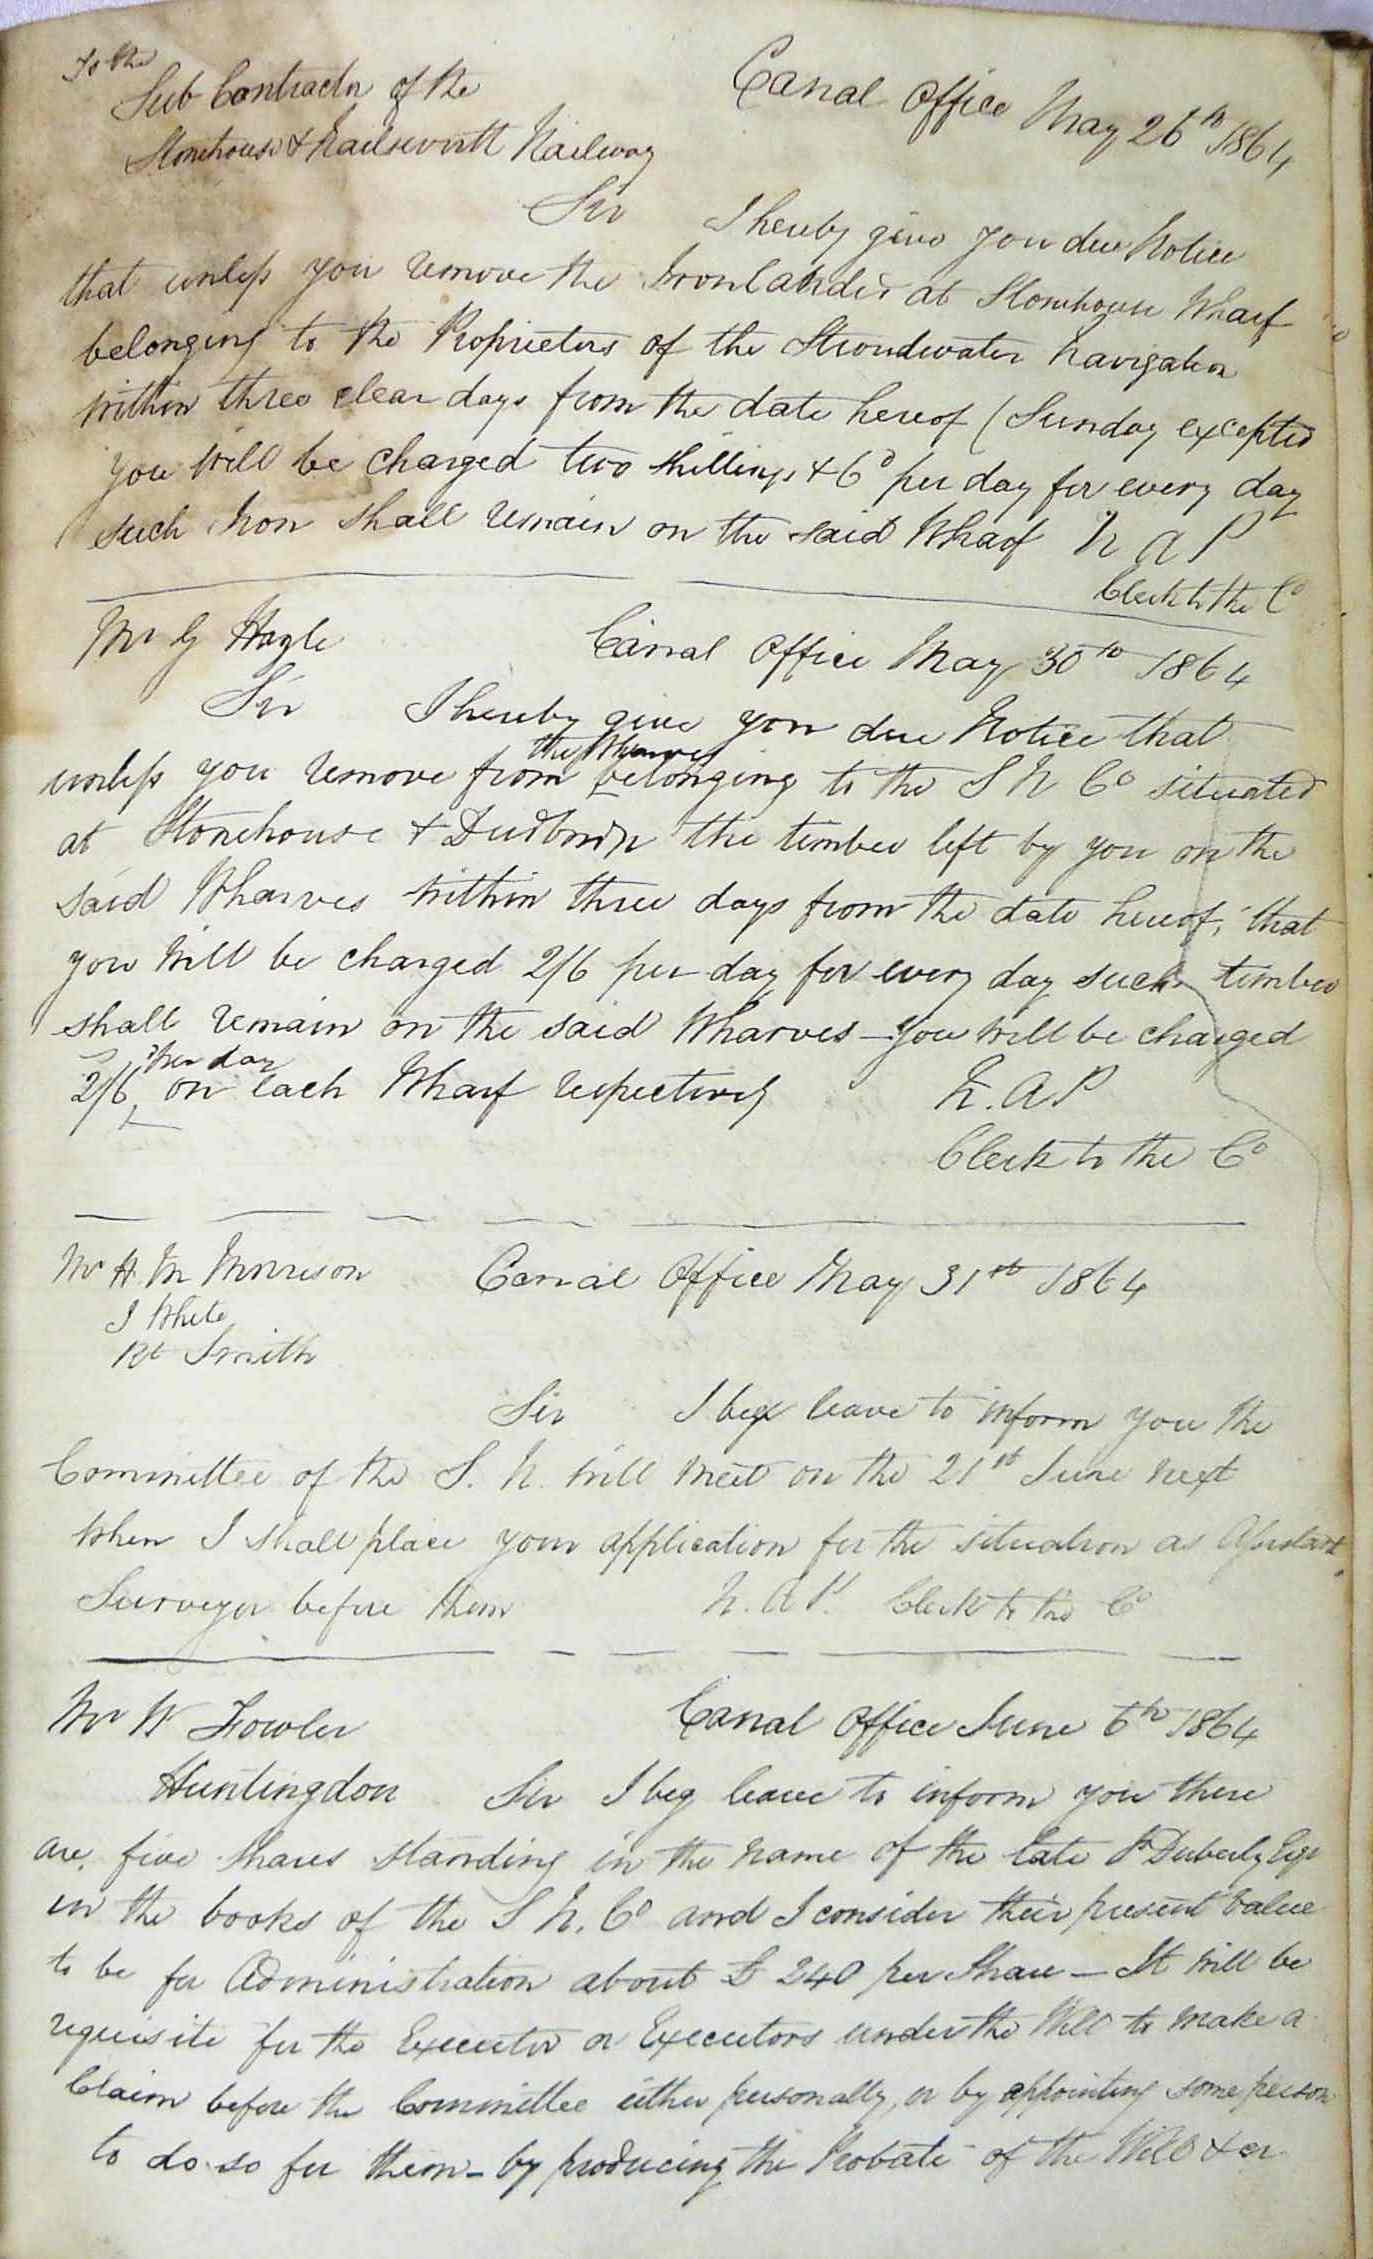 To the
Sub Contractor of the
Stonehouse & Nailsworth Railway
Canal Office May 26th 1864
Sir I hereby give you due Notice
that unless you remove the Iron landed at Stonehouse Wharf
belonging to the Proprietors of the Stroudwater Navigation
within three clear days from the date hereof (Sunday excepted
you will be charged two shillings & 6d per day for every day
such Iron shall remain on the said Wharf N A P
Clerk to the Co
Mr G Hayle Canal Office May 30th 1864
Sir I hereby give you due Notice that
the Wharves
unless you remove from belonging to the S N Co situated
at Stonehouse & Dudbridge the timber left by you on the
said Wharves within three days from the date hereof, that
you will be charged 2/6 per day for every day such timber
shall remain on the said Wharves – you will be charged
per day
2/6 on each Wharf respectively N. A P
Clerk to the Co
Mr H M Morrison Canal Office May 31st 1864
J White
Rt Smith
Sir I beg leave to inform you the
Committee of the S. N. will meet on the 21st June next
when I shall place your application for the situation as Assistant
Surveyor before them N. A P. Clerk to the Co
Mr W Fowler Canal Office June 6th 1864
Huntingdon Sir I beg leave to inform you there
are five shares standing in the name of the late Duberly Esqr
in the books of the S N. Co and I consider their present value
to be for Administration about £ 240 per Share – It will be
requisite for the Executor or Executors under the Will to make a
Claim before the Committee either personally, or by appointing some person
to do so for them – by producing the Probate of the Will & or